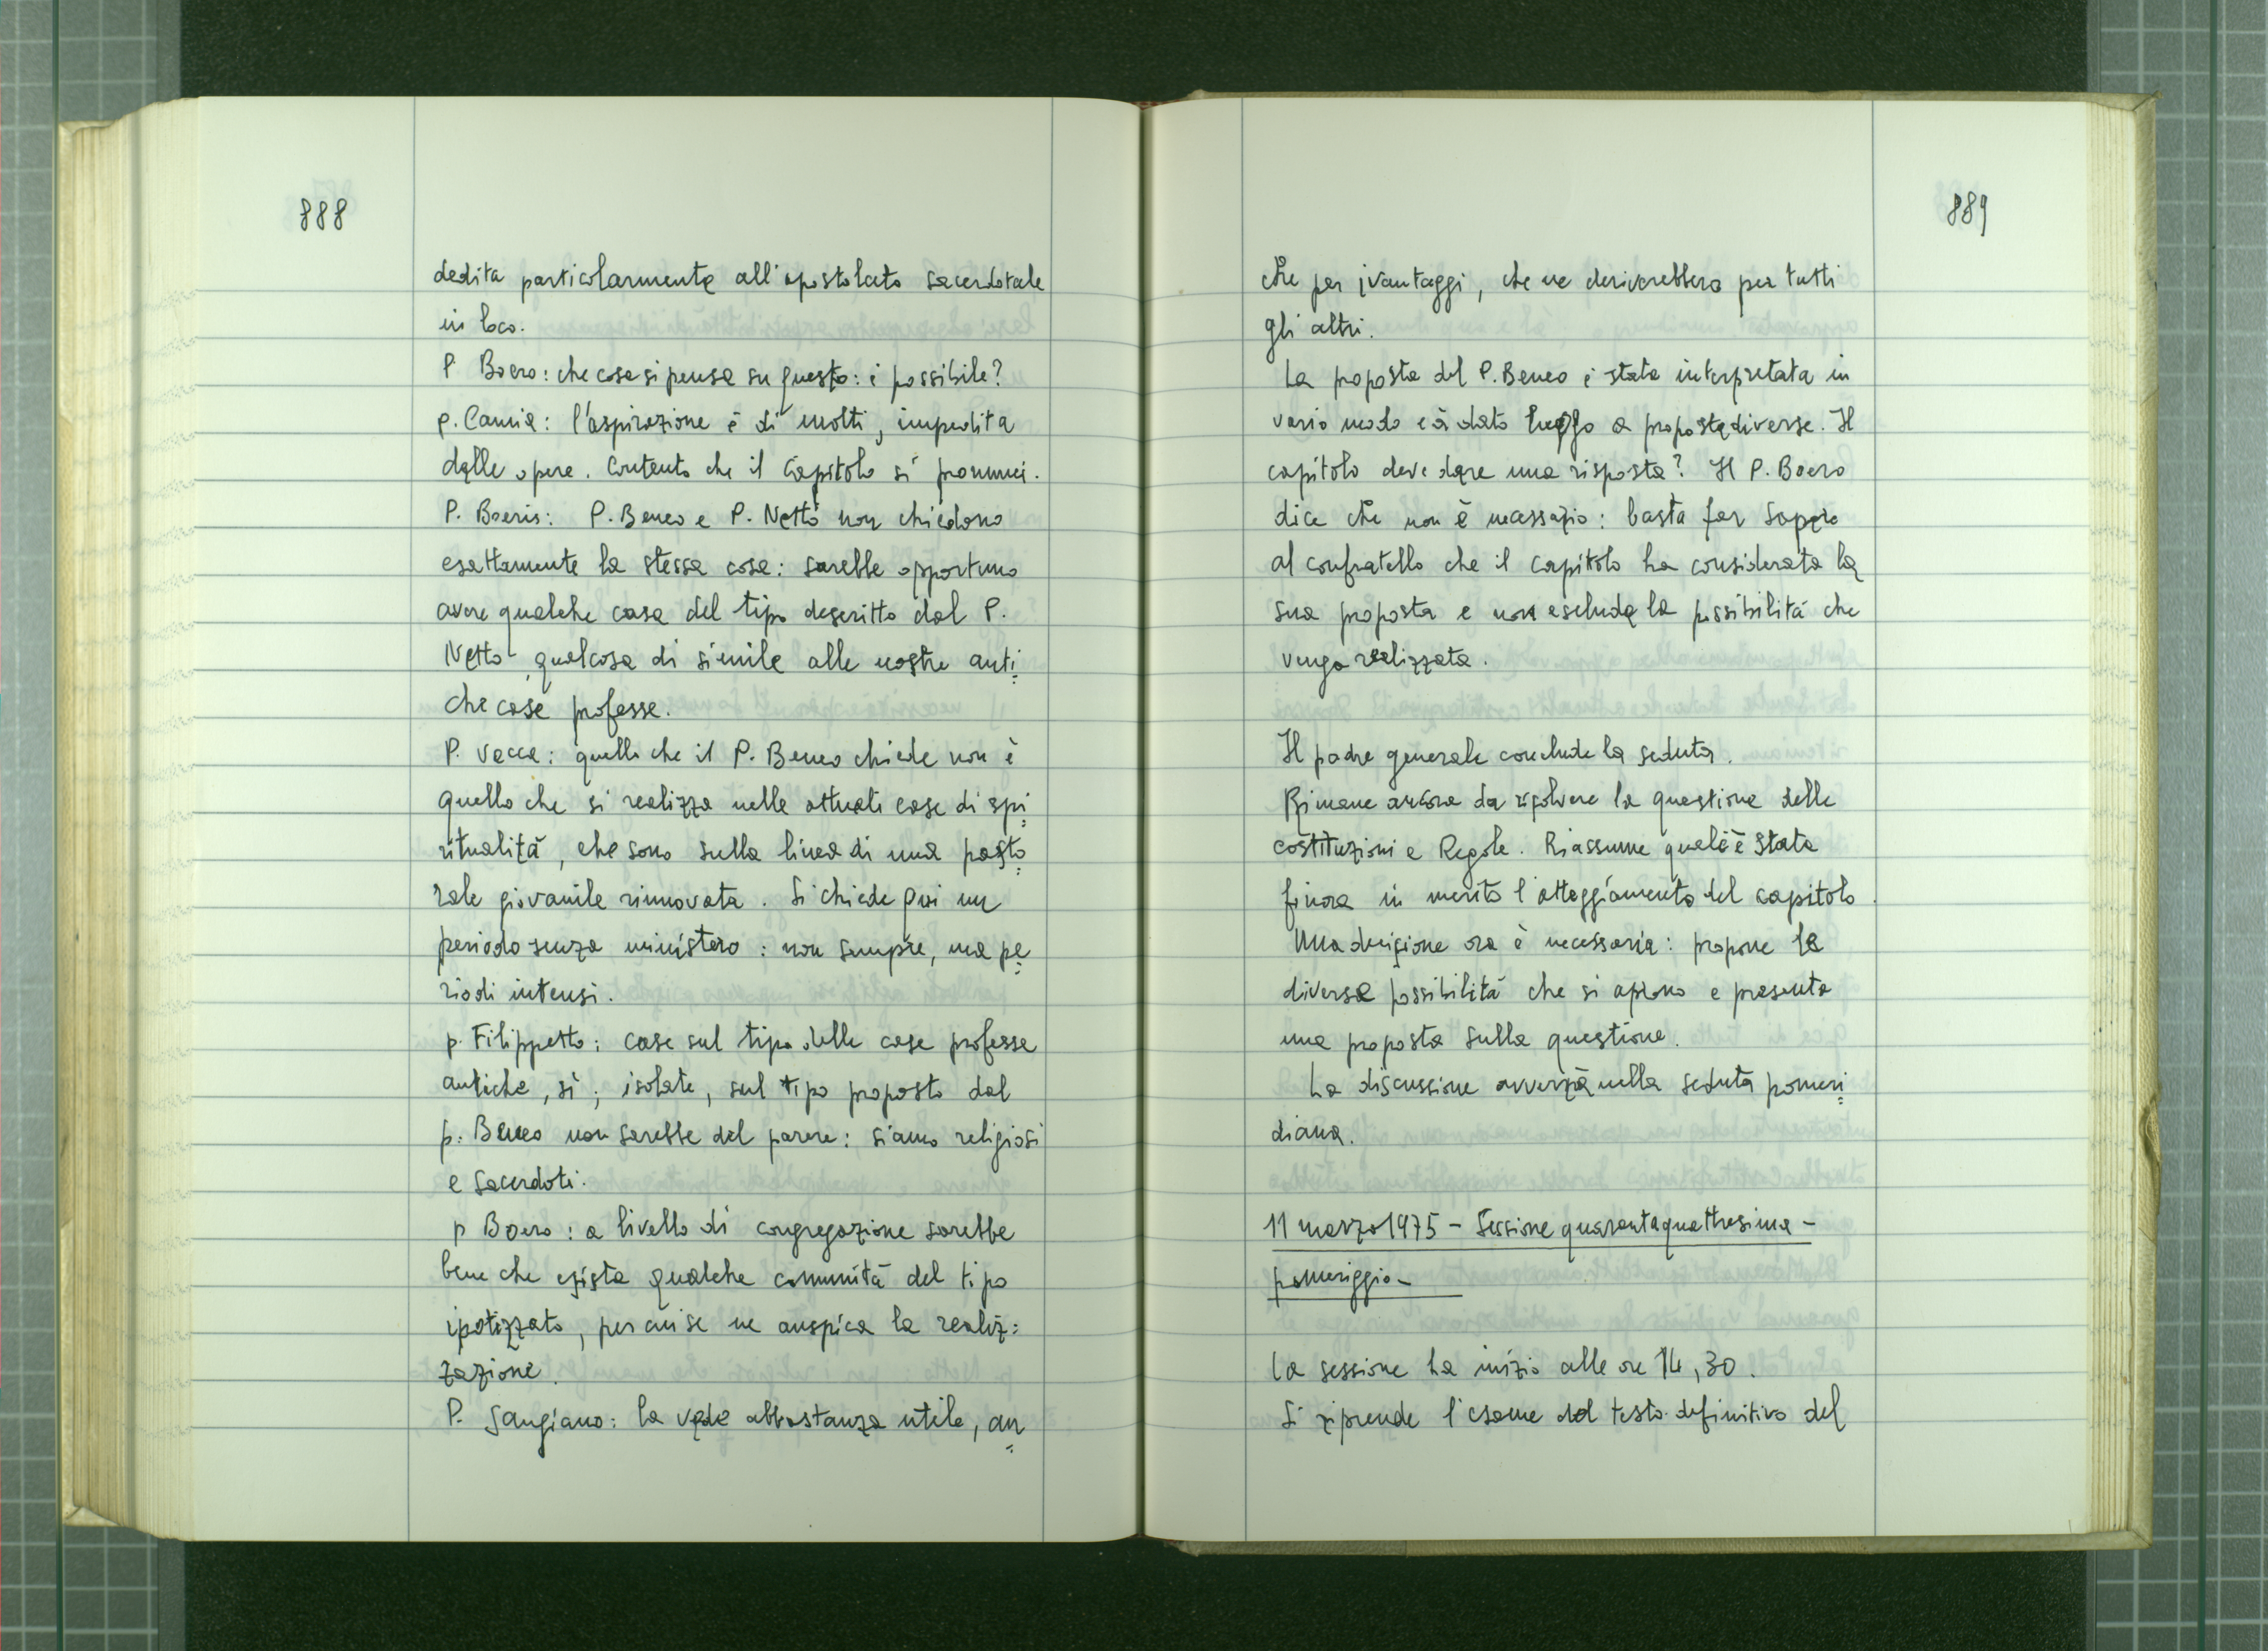 888
dedita particolarmente all'apostolato sacerdotale
in loco.
P Boero: che cosa si pensa su questo: è possibile?
p. Camia: l'aspirazione è di molti, impedita
dalle opere. Contento che il Capitolo si pronunci.
P. Boeris: P. Beneo e P. Netto non chiedono
esattamente la stessa cosa: sarebbe opportuno
avere qualche casa del tipo descritto dal P.
Netto, qualcosa di simile alle nostre anti=
che case professe.
P. Vacca: quello che il P. Beneo chiede non è
quello che si realizza nelle attuali case di spi=
ritualità, che sono sulla linea di una pasto=
rale giovanile rinnovata. Si chiede qui un
periodo senza ministero: non sempre, ma pe=
riodi intensi.
p. Filippetto: case sul tipo delle case professe
antiche, sì; isolate, sul tipo proposto dal
p. Beneo non sarebbe del parere: siamo religiosi
e sacerdoti.
p Boero: a livello di congregazione sarebbe
bene che esista qualche comunità del tipo
ipotizzato, per cui se ne auspica la realiz=
zazione.
P. Sangiano: la vede abbastanza utile, an=
889
che per i vantaggi, che ne deriverebbero per tutti
gli altri.
La proposta del P. Beneo è stata interpretata in
vario modo e à dato luogo a proposte diverse. Il
capitolo deve dare una risposta? Il P. Boero
dice che non è necessario: basta far sapere
al confratello che il capitolo ha considerata la
sua proposta e non esclude la possibilità che
venga realizzata.
Il padre generale conclude la seduta.
Rimane ancora da risolvere la questione delle
costituzioni e Regole. Riassume qual è stata
finora in merito l'atteggiamento del capitolo.
Una decisione ora è necessaria: propone le
diverse possibilità che si aprono e presenta
una proposta sulla questione.
La discussione avverrà nella seduta pomeri=
diana.
11 marzo 1975 - Sessione quarantaquattresima -
pomeriggio -
La sessione ha inizio alle ore 14,30.
Si riprende l'esame del testo definitivo del